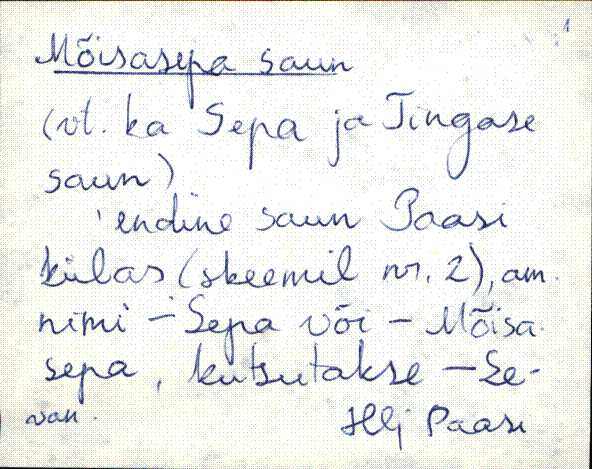 1
Mõisasepa saun
(vt. ka Sepa ja Tingase
saun)
'endine saun Paasi
külas (skeemil nr. 2), am.
nimi - Sepa või - Mõisa-
sepa, kutsutakse - Se-
van. Hlj Paasi